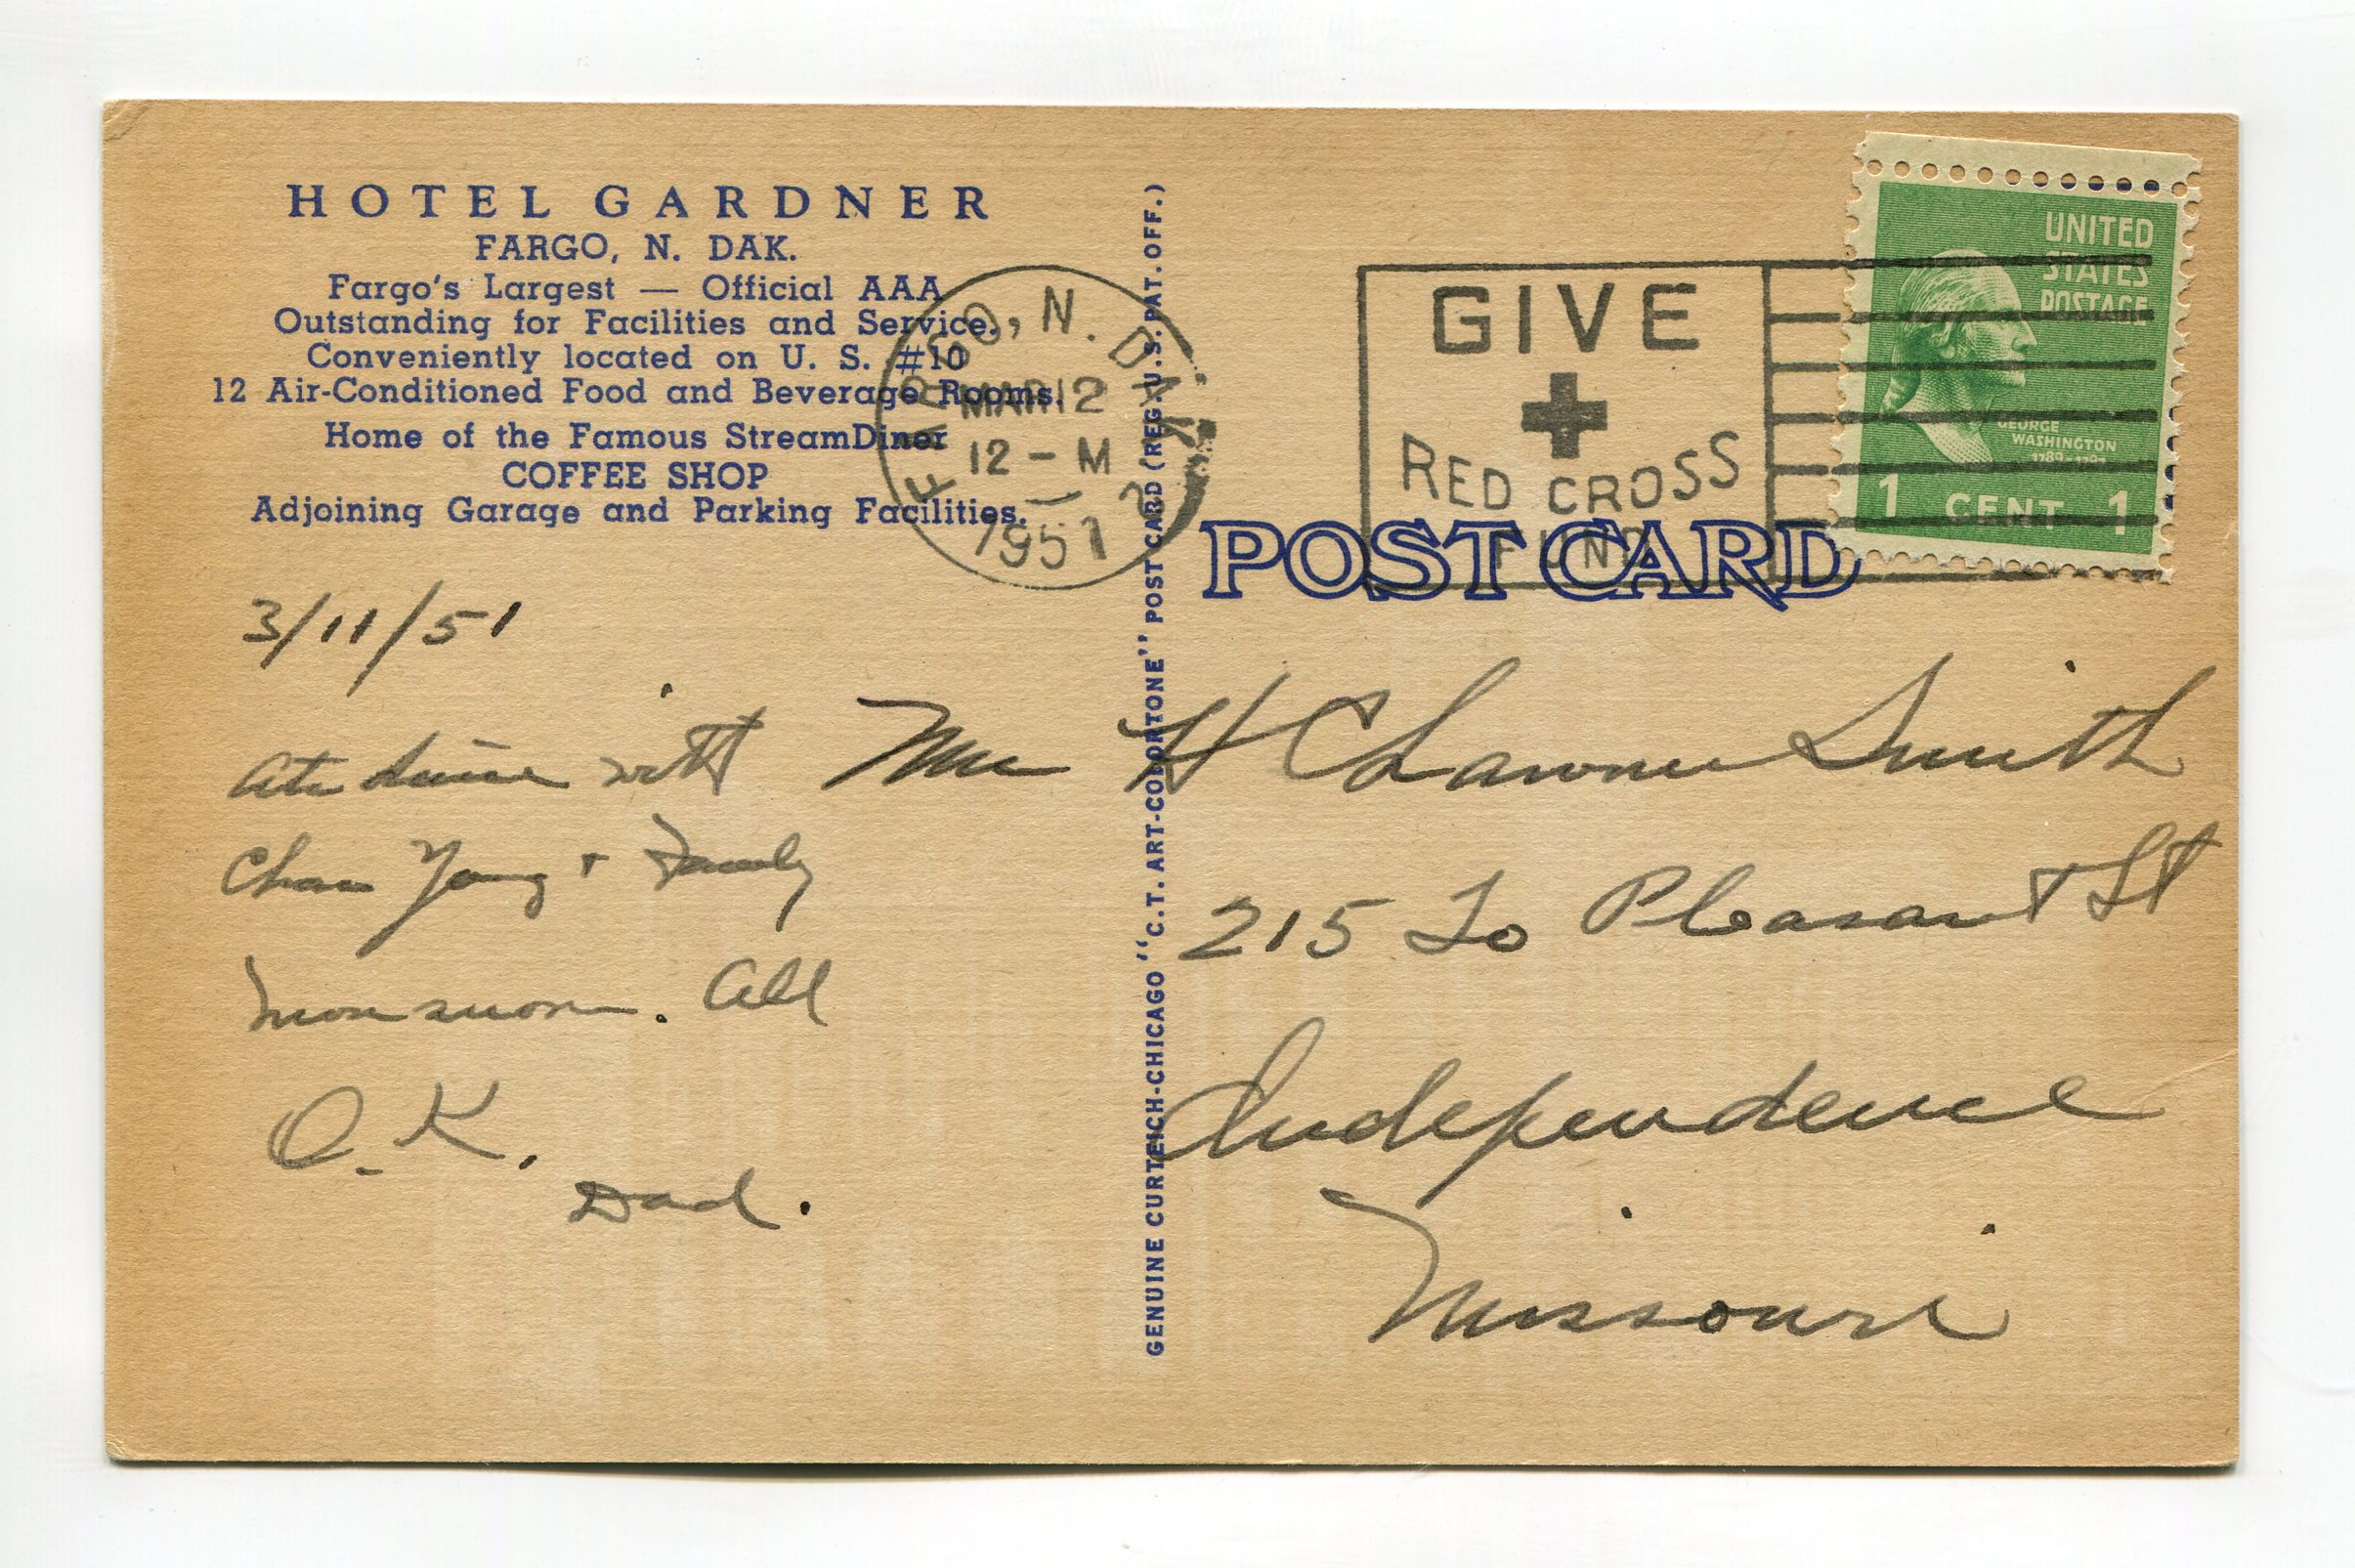 HOTEL GARDNER
FARGO, N. DAK.
Fargo's Largest — Official AAA
Outstanding for Facilities and Service.
Conveniently located on U. S. #10
12 Air-Conditioned Food and Beverage Rooms.
Home of the Famous StreamDiner
COFFEE SHOP
Adjoining Garage and Parking Facilities.
FARGO, N. DAK.
MAR 12
12 - M
1951
GIVE
RED CROSS
FUND
UNITED
STATES
POSTAGE
GEORGE
WASHINGTON
1789-1797
1 CENT 1
POST CARD
GENUINE CURTEICH-CHICAGO "C.T. ART-COLORTONE" POST CARD (REG. U.S. PAT. OFF.)
3/11/51
Ate with
Young + Family
. All
O.K.
Dad.
H C Smith
215 So Pleasant St
Independence
Missouri